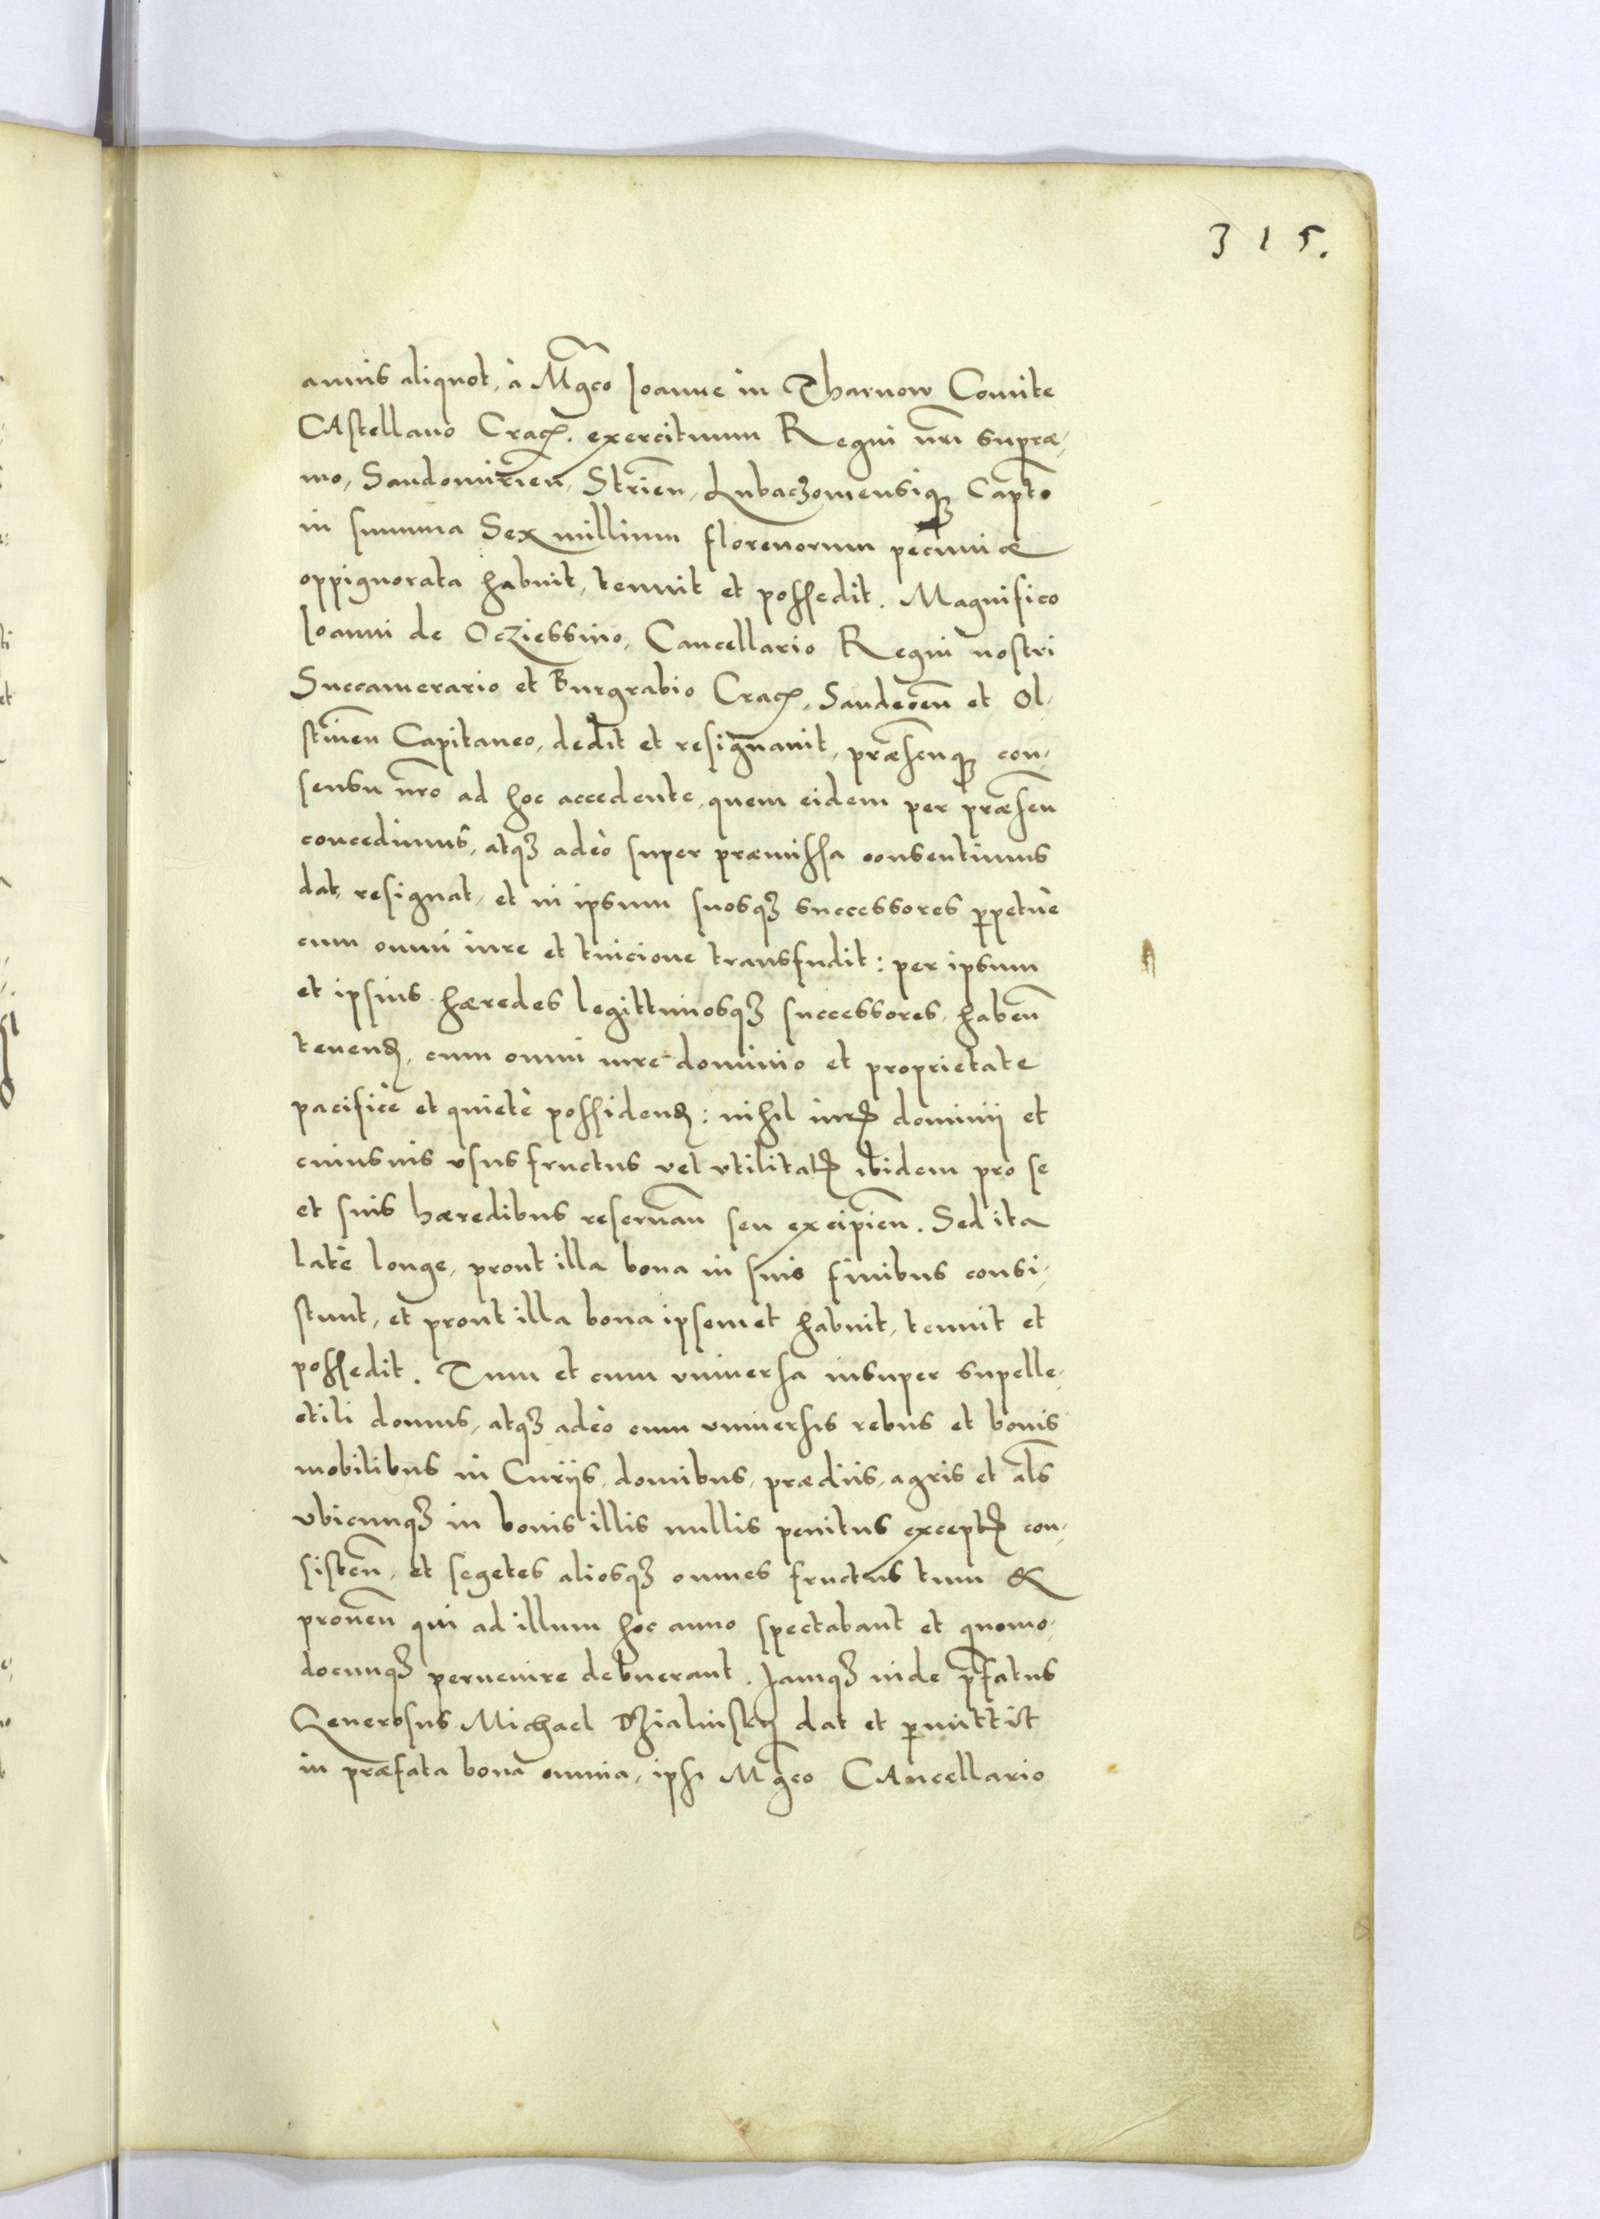 315.
annis aliquot, à Mgco Ioanne in Tharnow Comite
CAstellano Crac. exercituum Regni nri supræ,
mo, Sandomirien, Strien, Lubaczouiensiq Capto
in summa Sex millium florenorum pecuniæ
oppignorata habuit, tenuit et possedit. Magnifico
Ioanni de Ocziessino, Cancellario Regni nostri
Succamerario et Burgrabio Crac, Sandecen et Ol,
stinen Capitaneo, dedit et resignauit, præsenq con,
sensu nro ad hoc accedente, quem eidem per præsen
concedimus, atq adeò super præmissa consentimus
dat, resignat, et in ipsum suosq successores ppetuè
cum omni iure et tuicione transfudit: per ipsum
et ipsius hæredes legittimosq successores, haben
tenend, cum omni iure dominio et proprietate
pacificè et quietè possidend: nihil iuris dominii et
cuiusuis vsusfructus vel vtilitatis ibidem pro se
et suis hæredibus reseruan seu excipien. Sed ita
latè longe, prout illa bona in suis finibus consi,
stunt, et prout illa bona ipsemet habuit, tenuit et
possedit. Tum et cum vniuersa insuper supelle,
ctili domus, atq adeò cum vniuersis rebus et bonis
mobilibus in Curijs, domibus, prædiis, agris et als
vbicunq in bonis illis nullis penitus exceptis con,
sisten, et segetes aliosq omnes fructus tum &
prouen qui ad illum hoc anno spectabant et quomo,
docunq peruenire debuerant. Iamq inde pfatus
Generosus Michael Dzialinsky dat et pmittit
in præfata bona omnia, ipsi Mgco CAncellario